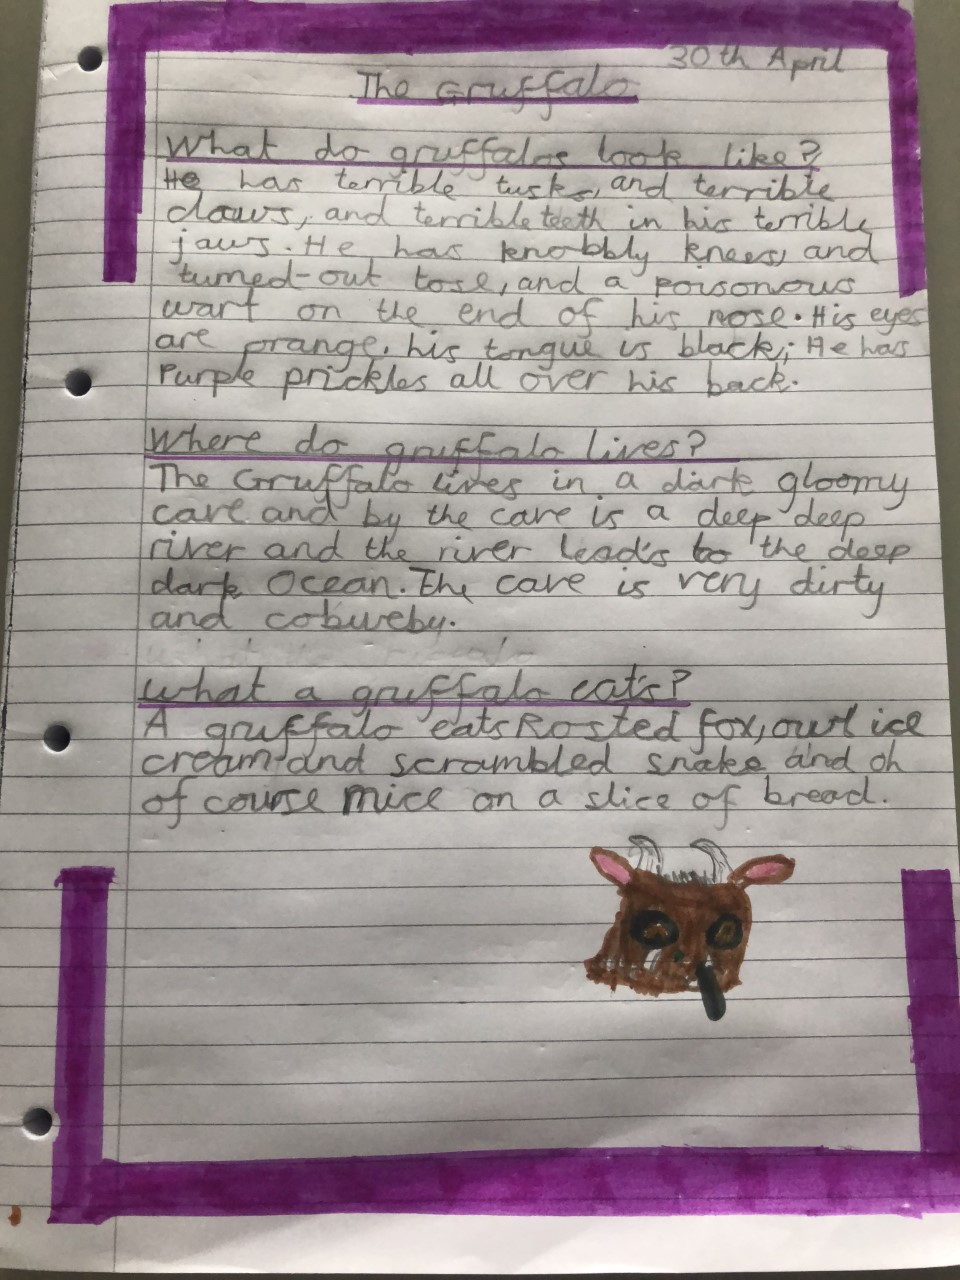 30th April
The Gruffalo
What do gruffalos look like?
He has terrible tusks, and terrible
claws, and terrible teeth in his terrible
jaws. He has knobbly knees, and
turned-out tose, and a poisonous
wart on the end of his nose. His eyes
are orange, his tongue is black; He has
Purple prickles all over his back.
Where do gruffalo lives?
The Gruffalo lives in a dark gloomy
cave and by the cave is a deep deep
river and the river leads to the deep
dark Ocean. The cave is very dirty
and cobweby.
What a gruffalo eats?
A gruffalo eats Rosted fox, owl ice
cream and scrambled snake and oh
of course mice on a slice of bread.